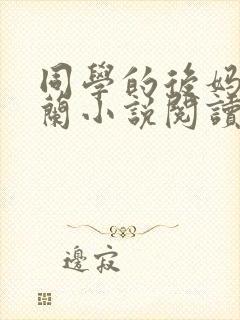 同學的後妈
蘭小説閱讀
邊寂